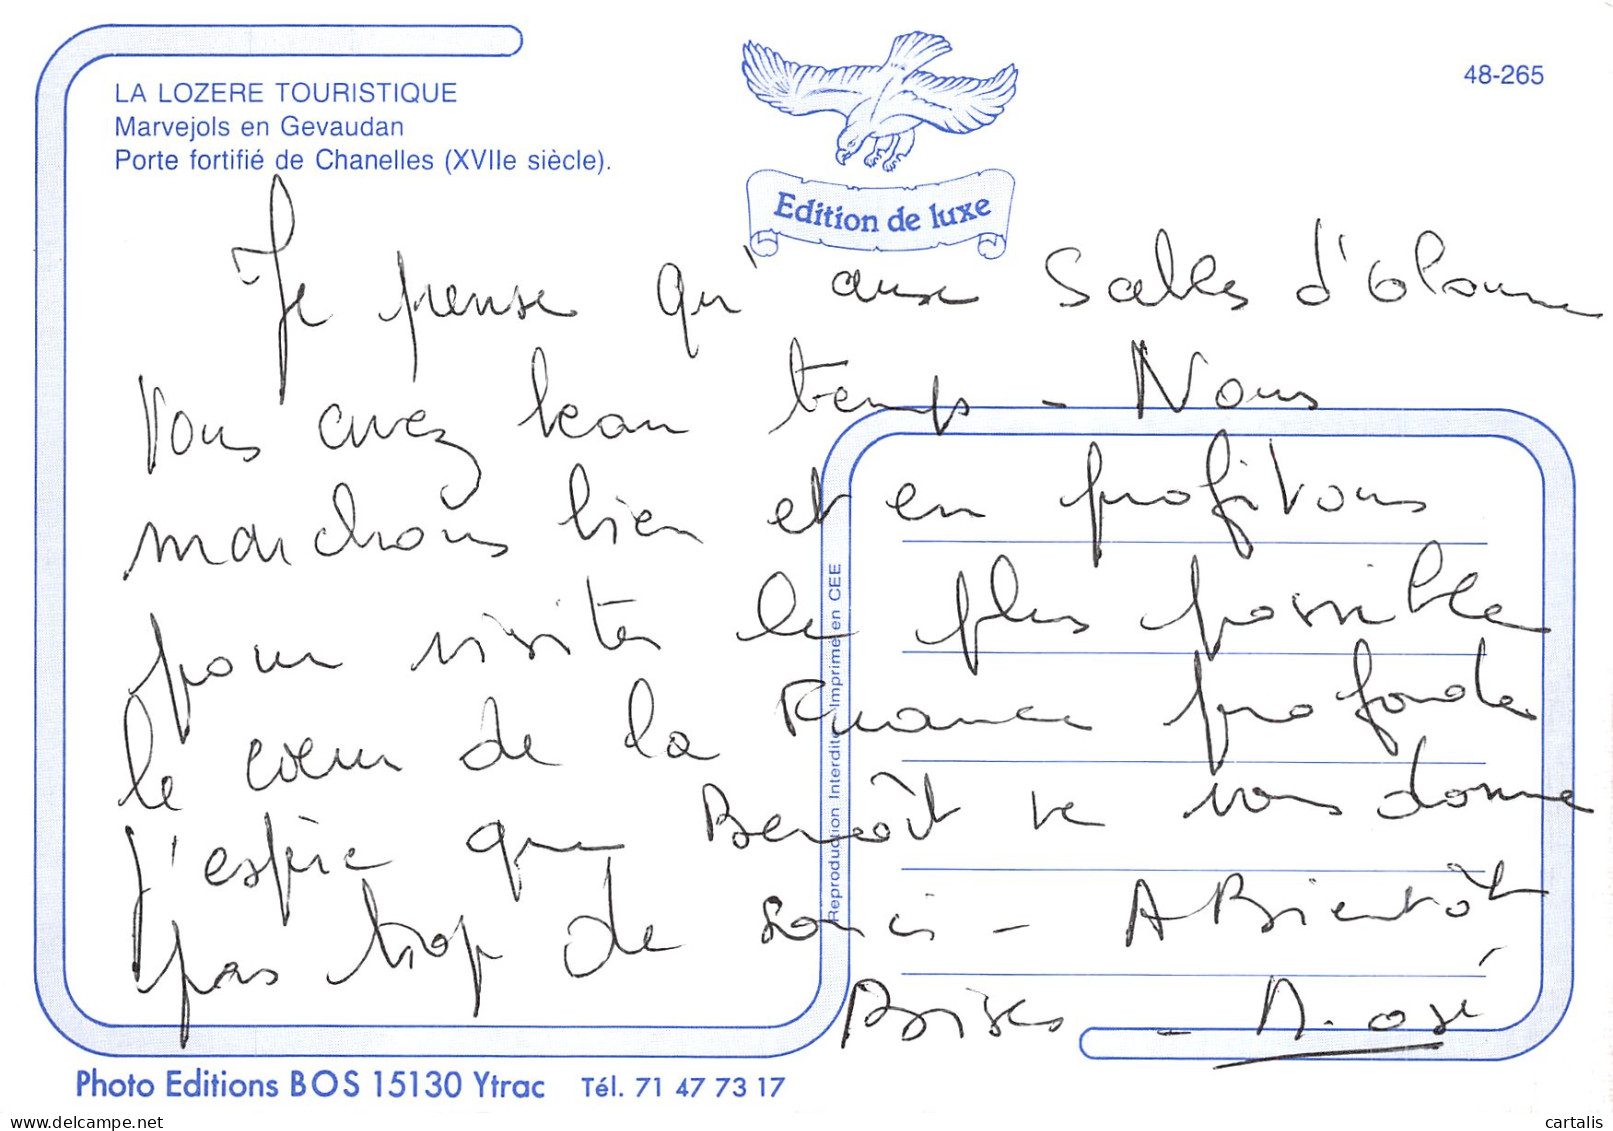 LA LOZERE TOURISTIQUE
Marvejols en Gevaudan
Porte fortifié de Chanelles (XVIIe siècle).
48-265
Edition de luxe
Je pense qu'aux Sables d'Olonne
Vous avez beau temps - Nous
marchons bien et en profitons
pour visiter le plus possible
le cœur de la France profonde
J'espère que Benoît ne vous donne
pas trop de soucis - A Bientôt
Bises -
Reproduction Interdite Imprimé en CEE
Photo Editions BOS 15130 Ytrac Tél. 71 47 73 17
delcampe.net
cartalis